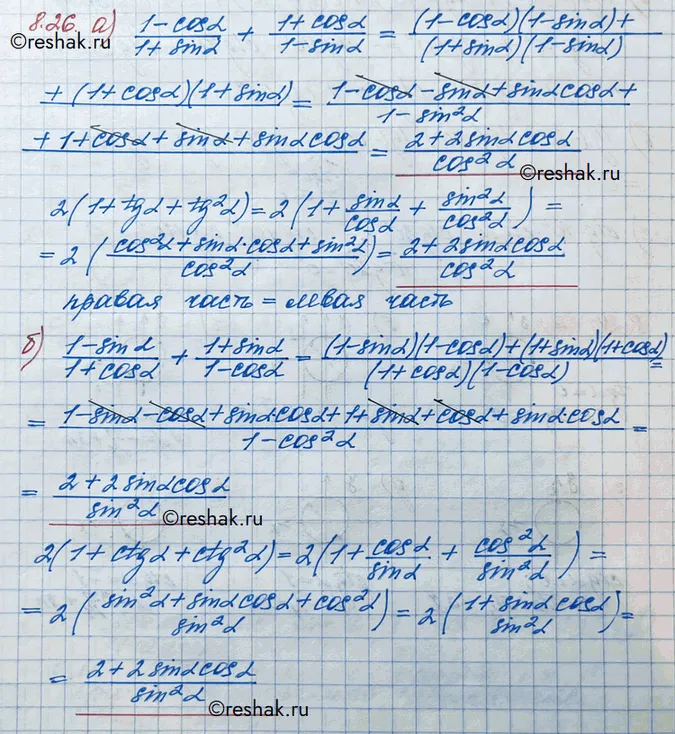 8.26. а) (1-cosα)/(1+sinα) + (1+cosα)/(1-sinα) = ((1-cosα)(1-sinα)+)/((1+sinα)(1-sinα))
©reshak.ru
©reshak.ru
(+(1+cosα)(1+sinα))/ = (1-cosα-sinα+sinαcosα+)/(1-sin²α)
(+1+cosα+sinα+sinαcosα)/ = (2+2sinαcosα)/(cos²α)
©reshak.ru
2(1+tgα+tg²α)=2(1+sinα/cosα + sin²α/cos²α) =
=2((cos²α+sinα·cosα+sin²α)/(cos²α))=(2+2sinαcosα)/(cos²α)
правая часть = левая часть
б) (1-sinα)/(1+cosα) + (1+sinα)/(1-cosα) = ((1-sinα)(1-cosα)+(1+sinα)(1+cosα))/((1+cosα)(1-cosα)) =
= (1-sinα-cosα+sinα·cosα+1+sinα+cosα+sinα·cosα)/(1-cos²α) =
= (2+2sinαcosα)/(sin²α)
©reshak.ru
2(1+ctgα+ctg²α)=2(1+cosα/sinα + cos²α/sin²α) =
=2((sin²α+sinαcosα+cos²α)/(sin²α))=2((1+sinαcosα)/(sin²α))=
= (2+2sinαcosα)/(sin²α)
©reshak.ru